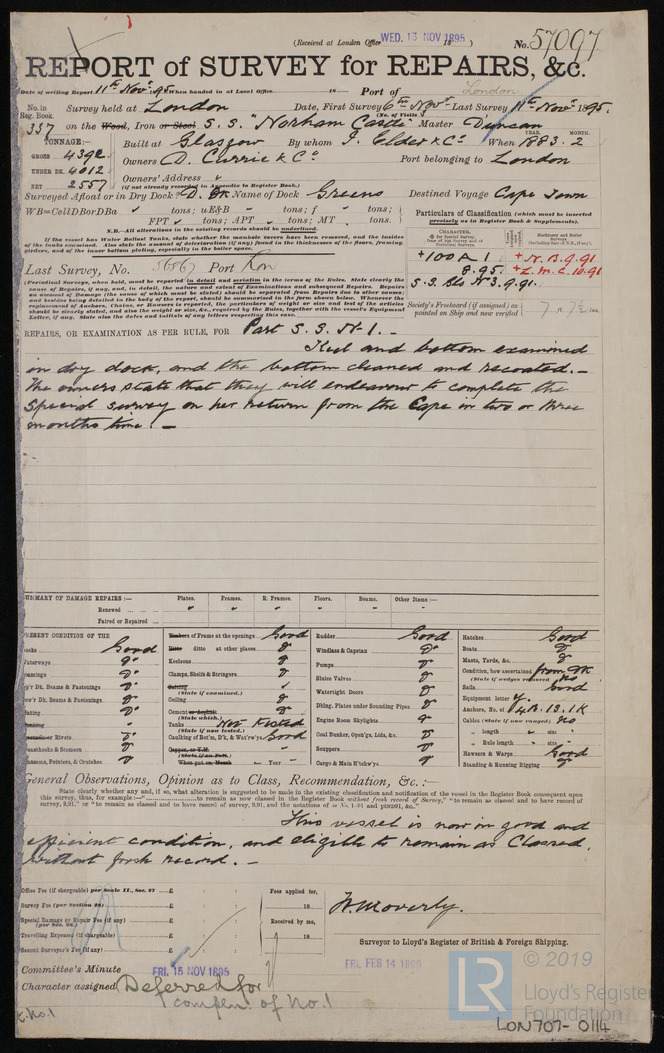 (Received at London Office WED. 13 NOV 1895 18 ) No. 57097
REPORT of SURVEY for REPAIRS, &c.
Date of writing Report 11th Novr 95 When handed in at Local Office 18 Port of London
No. in Reg. Book. Survey held at London Date, First Survey 6th Novr Last Survey 11th Novr 1895.
(No. of Visits )
337 on the Wood, Iron or Steel S. S. "Norham Castle" Master Duncan
TONNAGE:— Built at Glasgow By whom J. Elder & Co When 1883. 2
YEAR. MONTH.
GROSS 4392 Owners D. Currie & Co Port belonging to London
UNDER DK. 4012 Owners' Address
NET 2557 (if not already recorded in Appendix to Register Book.)
Surveyed Afloat or in Dry Dock? D. Dk Name of Dock Greens Destined Voyage Cape Town
WB=CellDBorDBa tons; uE&B tons; f tons;
FPT tons; APT tons; MT tons.
N.B.—All alterations in the existing records should be underlined.
If the vessel has Water Ballast Tanks, state whether the manhole covers have been removed, and the insides
of the tanks examined. Also state the amount of deterioration (if any) found in the thicknesses of the floors, framing,
girders, and of the inner bottom plating, especially in the boiler space.
Particulars of Classification (which must be inserted
precisely as in Register Book & Supplements).
CHARACTER.
Machinery and Boiler Surveys
+100A 1 + N. B. 9.91
8.95. + L. M. C. 10.91
S. S. Lto No 3. 9.91.
Last Survey, No. 56867 Port Lon
(Periodical Surveys, when held, must be reported in detail and seriatim in the terms of the Rules. State clearly the
cause of Repairs, if any, and, in detail, the nature and extent of Examinations and subsequent Repairs. Repairs
on account of Damage (the cause of which must be stated) should be separated from Repairs due to other causes;
and besides being detailed in the body of the report, should be summarised in the form shown below. Whenever the
replacement of Anchors, Chains, or Hawsers is reported, the particulars of weight or size and test of the articles
should be clearly stated, and also the weight or size, &c., required by the Rules, together with the vessel's Equipment
Letter, if any. State also the dates and initials of any letters respecting this case.
Society's Freeboard (if assigned) as
painted on Ship and now verified 7 ft 7½ ins.
REPAIRS, OR EXAMINATION AS PER RULE, FOR Part S. S. No 1. —
Keel and bottom examined
in dry dock, and the bottom cleaned and recoated. —
The owners state that they will endeavour to complete the
Special survey on her return from the Cape in two or three
months time. —
SUMMARY OF DAMAGE REPAIRS:— Plates. Frames. R. Frames. Floors. Beams. Other Items:—
Renewed
Faired or Repaired
PRESENT CONDITION OF THE
Decks Good
Waterways Do
Coamings Do
Up'r Dk. Beams & Fastenings Do
Low'r Dk. Beams & Fastenings Do
Plating Do
or Rivets Do
Breasthooks & Stemson Do
Transoms, Pointers, & Crutches Do
Timbers of Frame at the openings Good
Ditto ditto at other places Do
Keelsons Do
Clamps, Shelfs & Stringers Do
Salting
(State if examined.)
Ceiling Do
Cement or Asphalt Do
(State which.)
Tanks Not tested
(State if now tested.)
Caulking of Bot'm, D'k, & Wat'rw'ys Good
Copper, or Y.M.
(State if on Felt.)
When put on, Month Year
Rudder Good
Windlass & Capstan Do
Pumps Do
Sluice Valves Do
Watertight Doors Do
Dblng. Plates under Sounding Pipes Do
Engine Room Skylights Do
Coal Bunker, Open'gs, Lids, &c. Do
Scuppers Do
Cargo & Main H'tchw'ys Do
Hatches Good
Boats Do
Masts, Yards, &c. Do
Condition, how ascertained from Dk
(State if wedges removed) No
Sails Good
Equipment letter
Anchors, No. of 4B. 1S. 1K
Cables (State if now ranged) No
„ length „ size
„ Rule length „ size
Hawsers & Warps Good
Standing & Running Rigging Do
General Observations, Opinion as to Class, Recommendation, &c.:—
State clearly whether any and, if so, what alteration is suggested to be made in the existing classification and notification of the vessel in the Register Book consequent upon
this survey, thus, for example :—" to remain as now classed in the Register Book without fresh record of Survey," "to remain classed and to have record of
survey, 9,91," or "to remain as classed and to have record of survey, 9,91, and the notations of
This vessel is now in good and
efficient condition, and eligible to remain as Classed,
without fresh record. —
Office Fee (if chargeable) per Scale II., Sec. 27 £ : : Fees applied for,
Survey Fee (per Section 28) £ : : 18
Special Damage or Repair Fee (if any) £ : : Received by me,
(per Sec. 28.)
Travelling Expenses (if chargeable) £ : : 18
Second Surveyor's Fee (if any) £ : :
W. Moverly.
Surveyor to Lloyd's Register of British & Foreign Shipping.
Committee's Minute FRI. 15 NOV 1895 FRI. FEB 14 1896
Character assigned Deferred for
complen. of No. 1
No. 1
LR
© 2019
Lloyd's Register
Foundation
LON707-0114